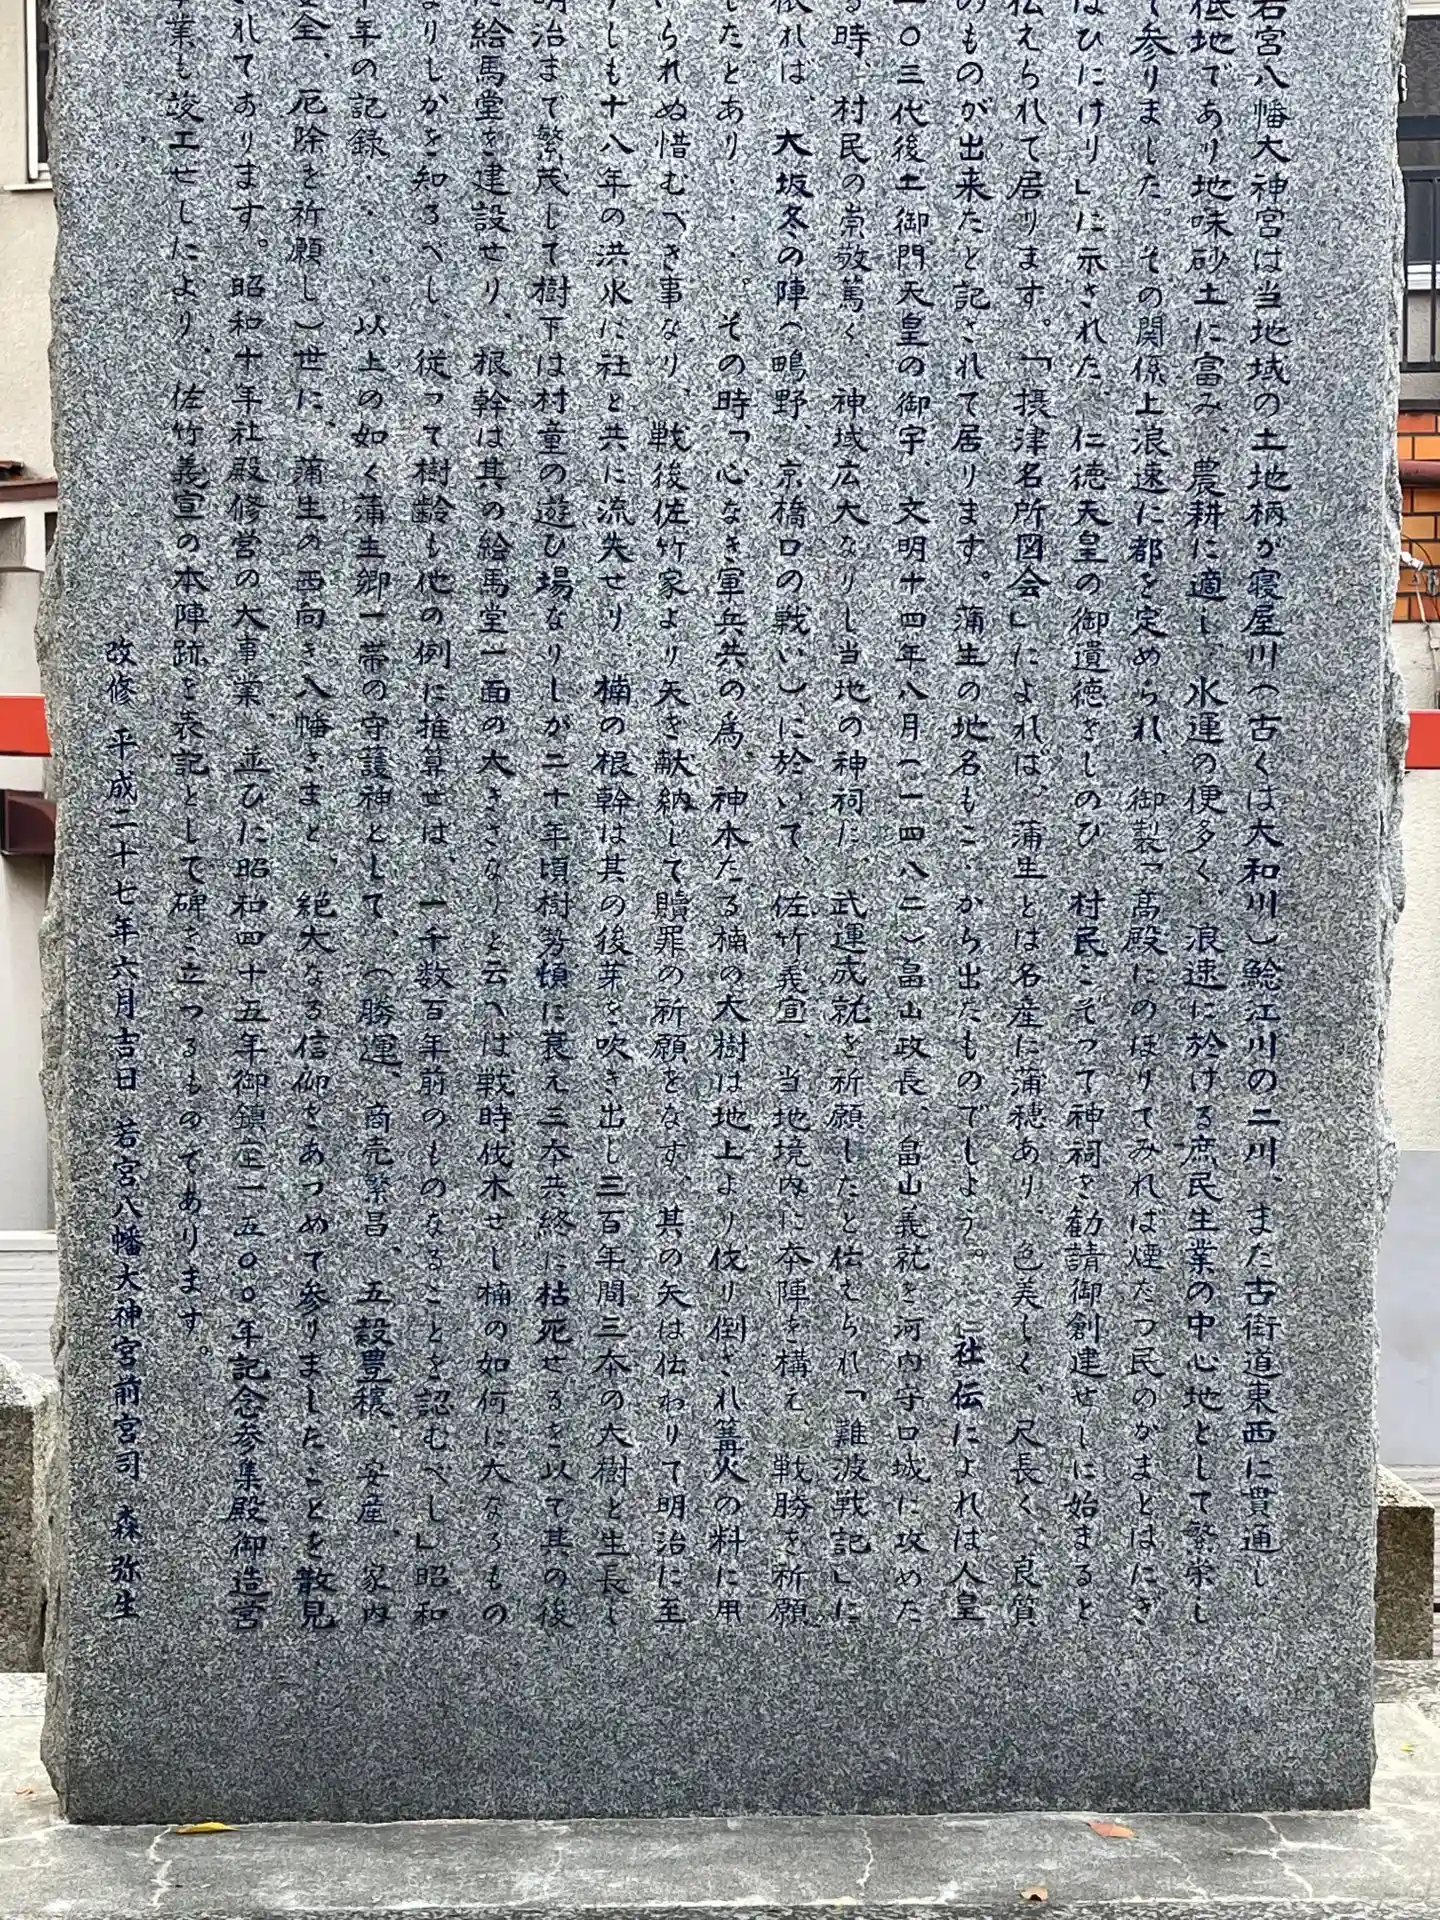 若宮八幡大神宮は当地域の土地柄が寝屋川(古くは大和川)鯰江川の二川、また古街道東西に貫通し
低地であり地味砂土に富み、農耕に適し、水運の便多く、浪速に於ける庶民生業の中心地として繁栄し
て参りました。その関係上浪速に都を定められ、御製「高殿にのぼりてみれば煙たつ民のかまとはにぎ
はひにけり」に示された、仁徳天皇の御遺徳をしのび、村民こぞって神祠を勧請御創建せしに始まると
伝えられて居ります。「摂津名所図会」によれば、蒲生とは名産に蒲穂あり、色美しく、尺長く、良質
のものが出来たと記されて居ります。蒲生の地名もこゝから出たものでしょう。社伝によれは人皇
一〇三代後土御門天皇の御宇、文明十四年八月(一四八二)畠山政長、畠山義就を河内守口城に攻めた
る時、村民の崇敬篤く、神域広大なりし当地の神祠に、武運成就を祈願したと伝えられ「難波戦記」に
依れば、大坂冬の陣(鴫野、京橋口の戦い)に於いて、佐竹義宣、当地境内に本陣を構え、戦勝を祈願
したとあり・・・。その時「心なき軍兵共の為、神木たる楠の大樹は地上より伐り倒され篝火の料に用
いられぬ惜むべき事なり、戦後佐竹家より矢を献納して贖罪の祈願をなす。其の矢は伝わりて明治に至
りしも十八年の洪水に社と共に流失せり、楠の根幹は其の後芽を吹き出し三百年間三本の大樹と生長し
明治まで繁茂して樹下は村童の遊び場なりしが二十年頃樹勢頓に衰え三本共終に枯死せるを以て其の後
に絵馬堂を建設せり、根幹は其の絵馬堂一面の大きさなりと云へば戦時伐木せし楠の如何に大なるもの
なりしかを知るべし、従って樹齢も他の例に推算せは、一千数百年前のものなることを認むべし」昭和
年の記録・・・。以上の如く蒲生郷一帯の守護神として、(勝運、商売繁昌、五穀豊穣、安産、家内
安全、厄除を祈願し)世に、蒲生の西向き八幡さまと、絶大なる信仰をあつめて参りましたことを散見
されてあります。昭和十年社殿修営の大事業、並びに昭和四十五年御鎮座一五〇〇年記念参集殿御造営
事業も竣工せしたより、佐竹義宣の本陣跡を表記として碑を立つるものてあります。
改修 平成二十七年六月吉日 若宮八幡大神宮前宮司 森弥生